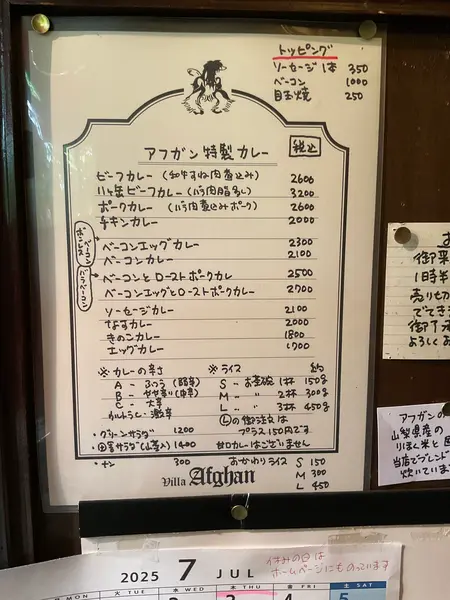 トッピング
ソーセージ1本 350
ベーコン 1000
目玉焼 250
アフガン特製カレー 税込
ビーフカレー(和牛すね肉煮込み) 2600
八ヶ岳ビーフカレー(バラ肉脂多し) 3200
ポークカレー(バラ肉煮込みポーク) 2600
チキンカレー 2000
ベーコンエッグカレー 2300
ベーコンカレー 2100
ベーコンとローストポークカレー 2500
ベーコンエッグとローストポークカレー 2700
ソーセージカレー 2100
なすカレー 2000
きのこカレー 1800
エッグカレー 1700
※カレーの辛さ
A - ふつう
B -
C - 大辛
ウルトラC - 激辛
※ライス 約
S - お茶碗1杯 150g
M - 〃 2杯 300g
L - 〃 3杯 450g
Lの御注文は
プラス150円です
甘口カレーはございません
・グリーンサラダ 1200
1400
・ナン 300
おかわりライス S 150
M 300
L 450
Villa Afghan
1時半
売り切
できま
よろしくお
アフガンの
山梨県産の
当店でブレンド
炊いていま
2025 7 JUL
休みの日は
ホームページにものっています
火 TUE
水 WED
木 THU
金 FRI
土 SAT
3 4 5